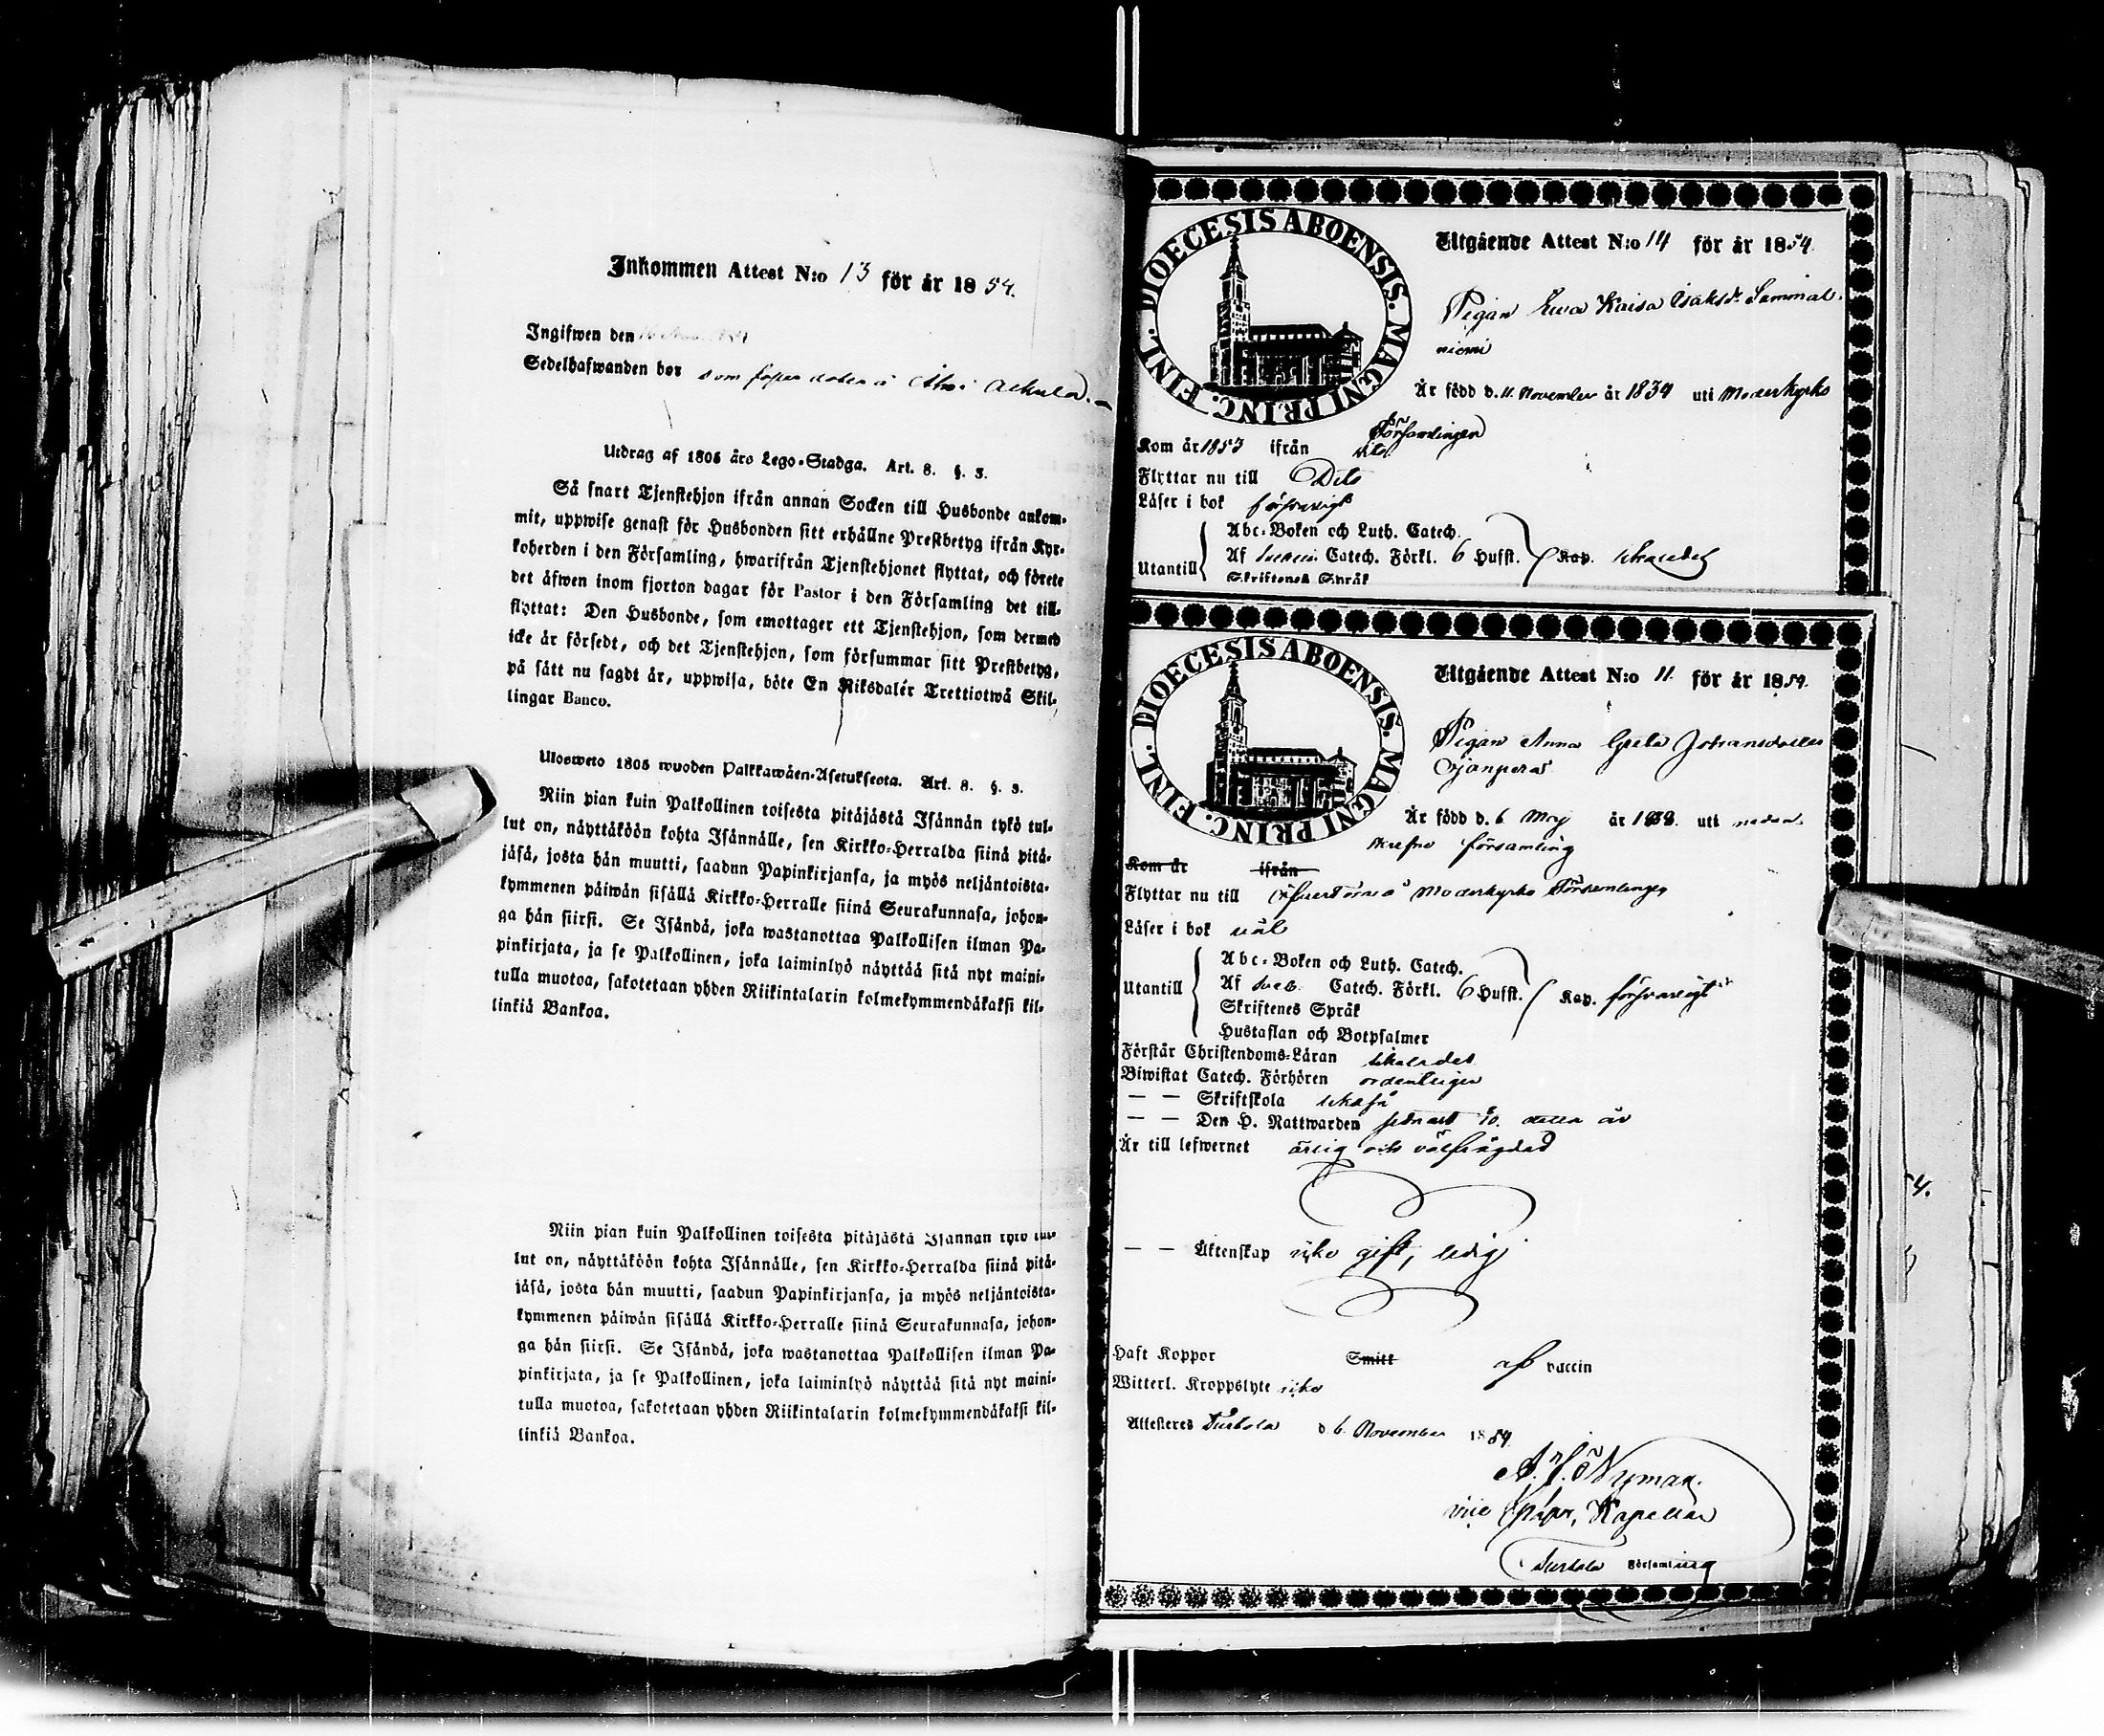 Inkommen Attest N:o 13 för år 1854.
Ingifwen den
Sedelhafwanden bor som
Utdrag af 1805 års Lego-Stadga. Art. 8. §. 3.
Så snart Tjenstehjon ifrån annan Socken till Husbonde ankom-
mit, uppwise genast för Husbonden sitt erhållne Prestbetyg ifrån Kyr-
koherden i den Församling, hwarifrån Tjenstehjonet flyttat, och förete
det äfwen inom fjorton dagar för Pastor i den Församling det till-
flyttat: Den Husbonde, som emottager ett Tjenstehjon, som dermed
icke är försedt, och det Tjenstehjon, som försummar sitt Prestbetyg,
på sätt nu sagdt är, uppwisa, böte En Riksdalér Trettiotwå Skil-
lingar Banco.
Ulosweto 1805 wuoden Palkkawäen-Asetuksesta. Art. 8. §. 3.
Niin pian kuin Palkollinen toisesta pitäjästä Isännän tykö tul-
lut on, näyttäköön kohta Isännälle, sen Kirkko-Herralda siinä pitä-
jäsä, josta hän muutti, saadun Papinkirjansa, ja myös neljäntoista-
kymmenen päiwän sisällä Kirkko-Herralle siinä Seurakunnasa, johon-
ga hän siirsi. Se Isändä, joka wastanottaa Palkollisen ilman Pa-
pinkirjata, ja se Palkollinen, joka laiminlyö näyttää sitä nyt maini-
tulla muotoa, sakotetaan yhden Riikintalarin kolmekymmendäkaksi kil-
linkiä Bankoa.
Niin pian kuin Palkollinen toisesta pitäjästä Isännän tykö tul-
lut on, näyttäköön kohta Isännälle, sen Kirkko-Herralda siinä pitä-
jäsä, josta hän muutti, saadun Papinkirjansa, ja myös neljäntoista-
kymmenen päiwän sisällä Kirkko-Herralle siinä Seurakunnasa, johon-
ga hän siirsi. Se Isändä, joka wastanottaa Palkollisen ilman Pa-
pinkirjata, ja se Palkollinen, joka laiminlyö näyttää sitä nyt maini-
tulla muotoa, sakotetaan yhden Riikintalarin kolmekymmendäkaksi kil-
linkiä Bankoa.
DIOECESIS ABOENSIS. MAGNI PRINC. FINL.
Utgående Attest N:o 14 för år 1854.
Pigan Ewa Kaisa Isaksdr Sammal-
niemi
Är född d. 11. November år 1834 uti Moderkyrko
Församlingen
Kom år 1853 ifrån dito
Flyttar nu till Dito
Läser i bok försvarligt
Abc-Boken och Luth. Catech.
Utantill Af Svebil. Catech. Förkl. 6 Hufst. Kap.
Skriftenes Språk
DIOECESIS ABOENSIS. MAGNI PRINC. FINL.
Utgående Attest N:o 11. för år 1854.
Pigan Anna Greta Johansdotter
Är född d. 6 Maj år 1838. uti nedan-
skrefne församling
Kom år ifrån
Flyttar nu till Öfvertorneå Moderkyrko Församlingen
Läser i bok väl
Abc-Boken och Luth. Catech.
Utantill Af Sveb. Catech. Förkl. 6 Hufst. Kap. försvarligt
Skriftenes Språk
Hustaflan och Botpsalmer
Förstår Christendoms-Läran likaledes
Biwistat Catech. Förhören ordentligen
— — Skriftskola likaså
— — Den H. Nattwarden sednast detta år
Är till lefwernet ärlig och välfrägdad
— — Äktenskap icke gift, ledig
Haft Koppor Smitt af vaccin
Witterl. Kroppslyte icke
Attesteres Turtola d. 6. November 1854.
Nyman
vice Kapellan
Turtola Församling